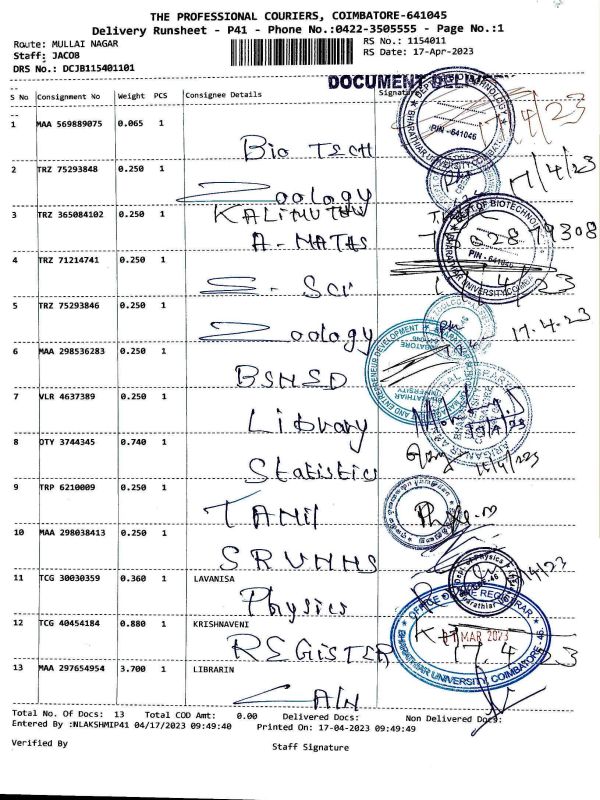 THE PROFESSIONAL COURIERS, COIMBATORE-641045
Delivery Runsheet - P41 - Phone No.:0422-3505555 - Page No.:1
Route: MULLAI NAGAR
RS No.: 1154011
Staff: JACOB
RS Date: 17-Apr-2023
DRS No.: DCJB115401101
DOCUMENT
S No Consignment No Weight PCS Consignee Details Signature
1 MAA 569889075 0.065 1
Bio Tech
PIN - 641046
2 TRZ 75293848 0.250 1
Zoology
17/4/23
3 TRZ 365084102 0.250 1
KALIMUTHU
A-MATHS
DEPT OF BIOTECHNOLOGY
PIN - 641046
BHARATHIAR UNIVERSITY
4 TRZ 71214741 0.250 1
S - Scr
5 TRZ 75293846 0.250 1
Zoology
17.4.23
6 MAA 298536283 0.250 1
BSNSD
7 VLR 4637389 0.250 1
Library
8 DTY 3744345 0.740 1
Statistics
9 TRP 6210009 0.250 1
TAMil
10 MAA 298038413 0.250 1
11 TCG 30030359 0.360 1 LAVANISA
Physics
12 TCG 40454184 0.880 1 KRISHNAVENI
REGISTER
OFFICE OF THE REGISTRAR
MAR 2023
BHARATHIAR UNIVERSITY, COIMBATORE - 46
17.4.23
13 MAA 297654954 3.700 1 LIBRARIN
Total No. Of Docs: 13 Total COD Amt: 0.00 Delivered Docs: Non Delivered Docs:
Entered By :NLAKSHMIP41 04/17/2023 09:49:40 Printed On: 17-04-2023 09:49:49
Verified By
Staff Signature